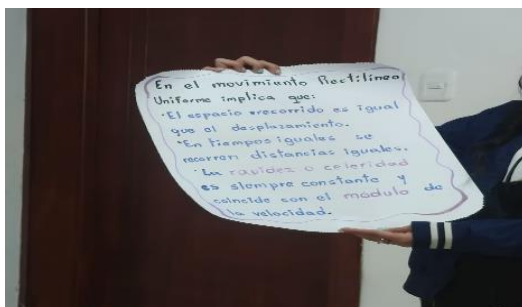 En el movimiento Rectilíneo
Uniforme implica que:
·El espacio recorrido es igual
que al desplazamiento.
·En tiempos iguales se
recorren distancias iguales.
·La rapidez o celeridad
es siempre constante y
coincide con el módulo de
la velocidad.